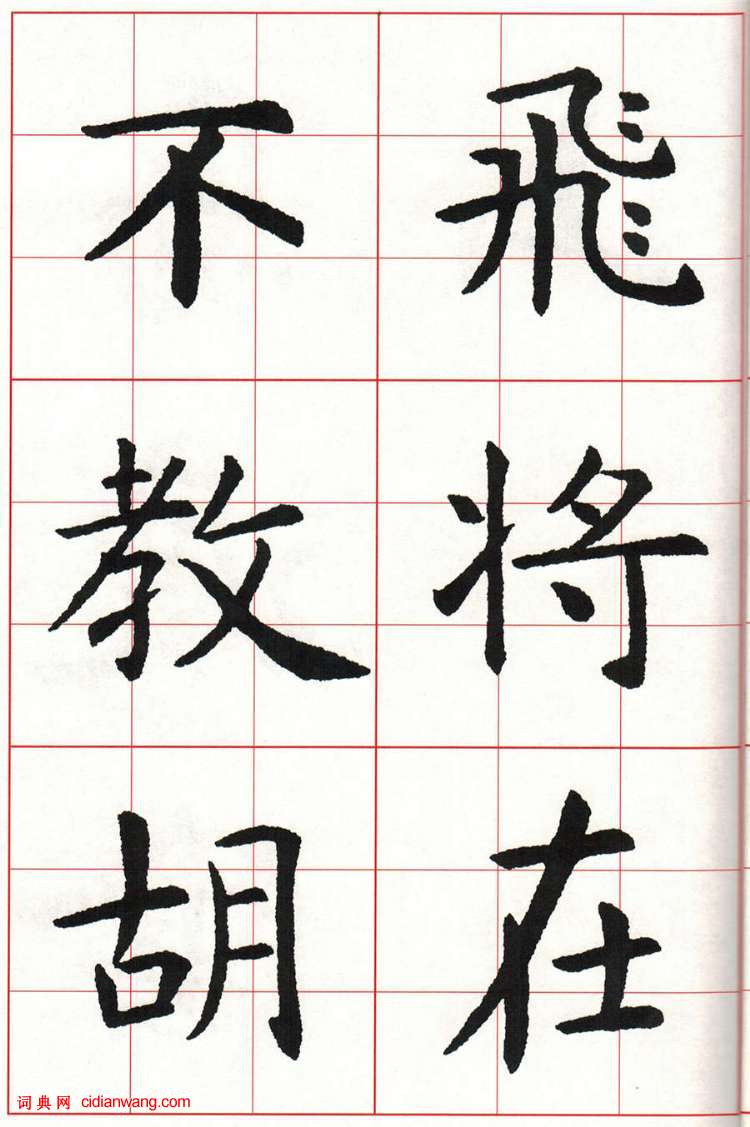 飛將在
不教胡
词典网 cidianwang.com